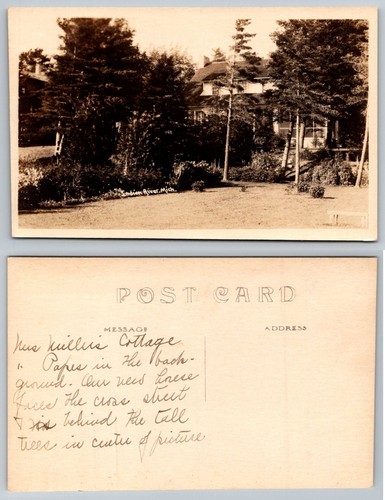 Indian River, Mich.
POST CARD
MESSAGE
ADDRESS
Mrs Millers Cottage
" Papes in the back-
ground - Our new house
faces the cross street
& is behind the tall
trees in centre of picture